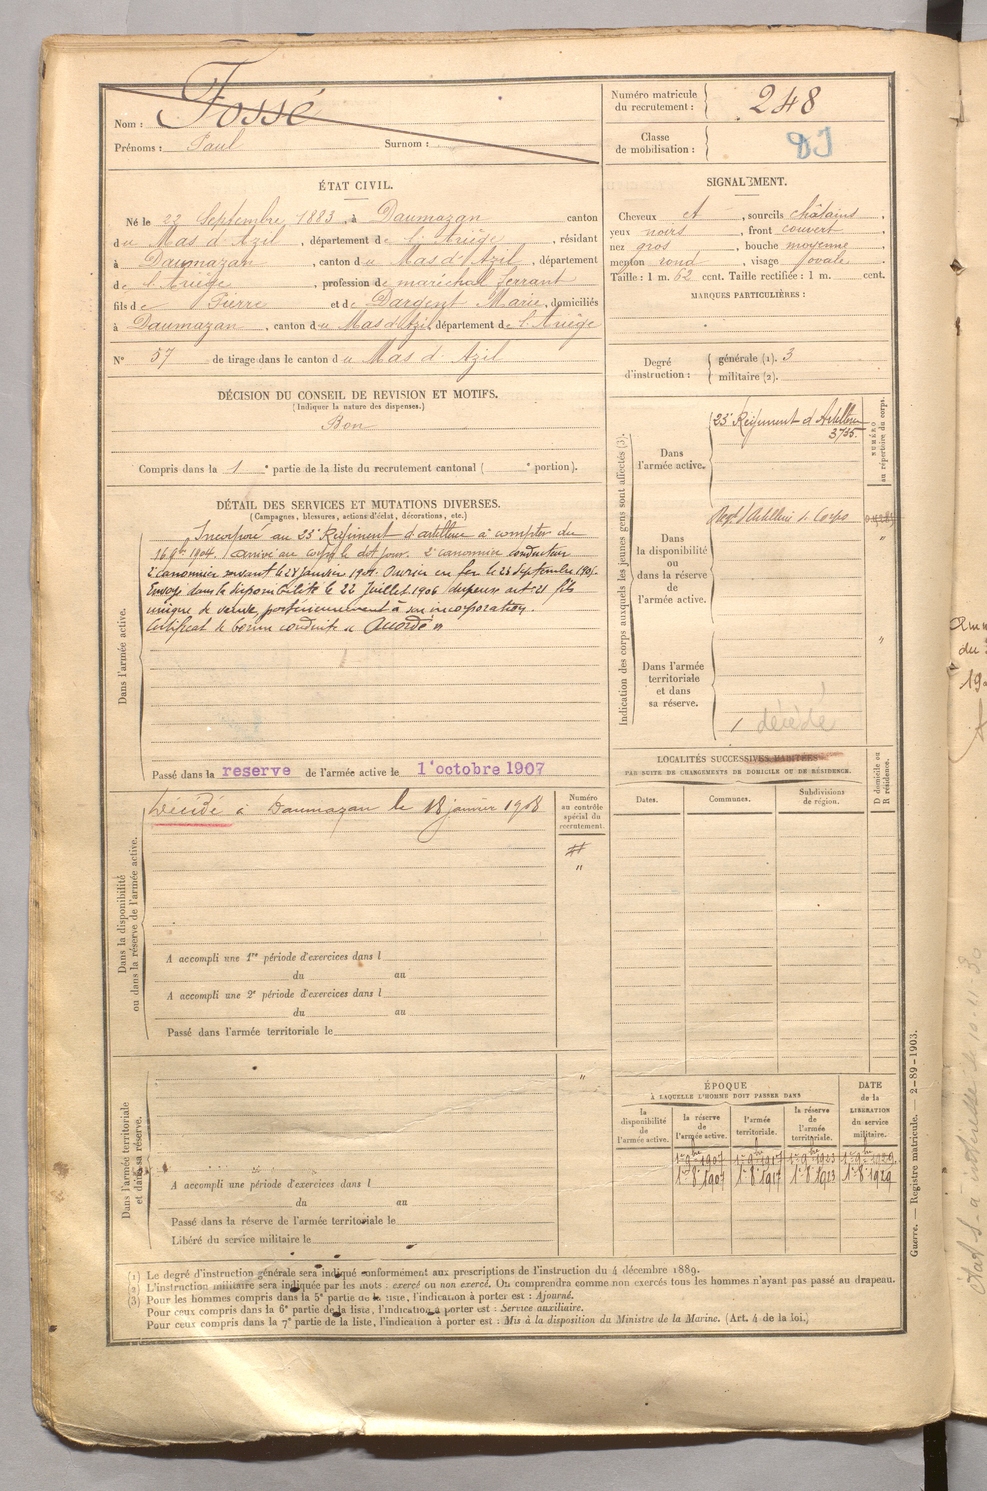 Nom : Fossé
Prénoms : Paul Surnom :
Numéro matricule
du recrutement : 248
Classe
de mobilisation :
ÉTAT CIVIL.
Né le 22 Septembre 1883, à Daumazan canton
du Mas d'Azil, département de l'Ariège, résidant
à Daumazan, canton du Mas d'Azil, département
de l'Ariège, profession de maréchal ferrant
fils de Pierre et de Dargent Marie, domiciliés
à Daumazan, canton du Mas d'Azil, département de l'Ariège
N° 57 de tirage dans le canton du Mas d'Azil
DÉCISION DU CONSEIL DE REVISION ET MOTIFS.
(Indiquer la nature des dispenses.)
Bon
Compris dans la 1e partie de la liste du recrutement cantonal ( e portion).
SIGNALEMENT.
Cheveux et, sourcils châtains.
yeux noirs, front couvert,
nez gros, bouche moyenne,
menton rond, visage ovale.
Taille : 1 m. 62 cent. Taille rectifiée : 1 m. cent.
MARQUES PARTICULIÈRES :
Degré
d'instruction :
générale (1). 3
militaire (2).
DÉTAIL DES SERVICES ET MUTATIONS DIVERSES.
(Campagnes, blessures, actions d'éclat, décorations, etc.)
Dans l'armée active.
Incorporé au 23e Régiment d'artillerie à compter du
16 9bre 1904. Arrivé au corps le dit jour. 2e canonnier conducteur
2e canonnier servant le 28 Janvier 190 . Ouvrier en fer le 23 Septembre 190 .
Envoyé dans la disponibilité le 22 Juillet 1906 dispensé art 21 fils
unique de veuve, postérieurement à son incorporation.
Certificat de bonne conduite « Accordé »
Passé dans la reserve de l'armée active le 1er octobre 1907
Indication des corps auxquels les jeunes gens sont affectés (3).
NUMÉRO
au répertoire du corps.
Dans
l'armée active.
23e Régiment d'Artillerie
3735.
Dans
la disponibilité
ou
dans la réserve
de
l'armée active.
Regt d'Artillerie de Corps
"
Dans l'armée
territoriale
et dans
sa réserve.
"
décédé
Dans la disponibilité
ou dans la réserve de l'armée active.
Décédé à Daumazan le 18 janvier 1908
Numéro
au contrôle
spécial du
recrutement.
"
A accompli une 1re période d'exercices dans l
du au
A accompli une 2e période d'exercices dans l
du au
Passé dans l'armée territoriale le
LOCALITÉS SUCCESSIVES HABITÉES
PAR SUITE DE CHANGEMENTS DE DOMICILE OU DE RÉSIDENCE.
D domicile ou
R résidence.
Dates.
Communes.
Subdivisions
de région.
Dans l'armée territoriale
et dans sa réserve.
"
A accompli une période d'exercices dans l
du au
Passé dans la réserve de l'armée territoriale le
Libéré du service militaire le
ÉPOQUE
À LAQUELLE L'HOMME DOIT PASSER DANS
DATE
de la
LIBÉRATION
du service
militaire.
la
disponibilité
de
l'armée active.
la réserve
de
l'armée active.
l'armée
territoriale.
la réserve
de
l'armée
territoriale.
1er 9bre 1907 1er 9bre 1917 1er 9bre 1923 1er 9bre 1929
1er 8bre 1907 1er 8bre 1917 1er 8bre 1923 1er 8bre 1929
Guerre. — Registre matricule. — 2-89-1903.
(1) Le degré d'instruction générale sera indiqué conformément aux prescriptions de l'instruction du 4 décembre 1889.
(2) L'instruction militaire sera indiquée par les mots : exercé ou non exercé. On comprendra comme non exercés tous les hommes n'ayant pas passé au drapeau.
(3) Pour les hommes compris dans la 5e partie de la liste, l'indication à porter est : Ajourné.
Pour ceux compris dans la 6e partie de la liste, l'indication à porter est : Service auxiliaire.
Pour ceux compris dans la 7e partie de la liste, l'indication à porter est : Mis à la disposition du Ministre de la Marine. (Art. 4 de la loi.)